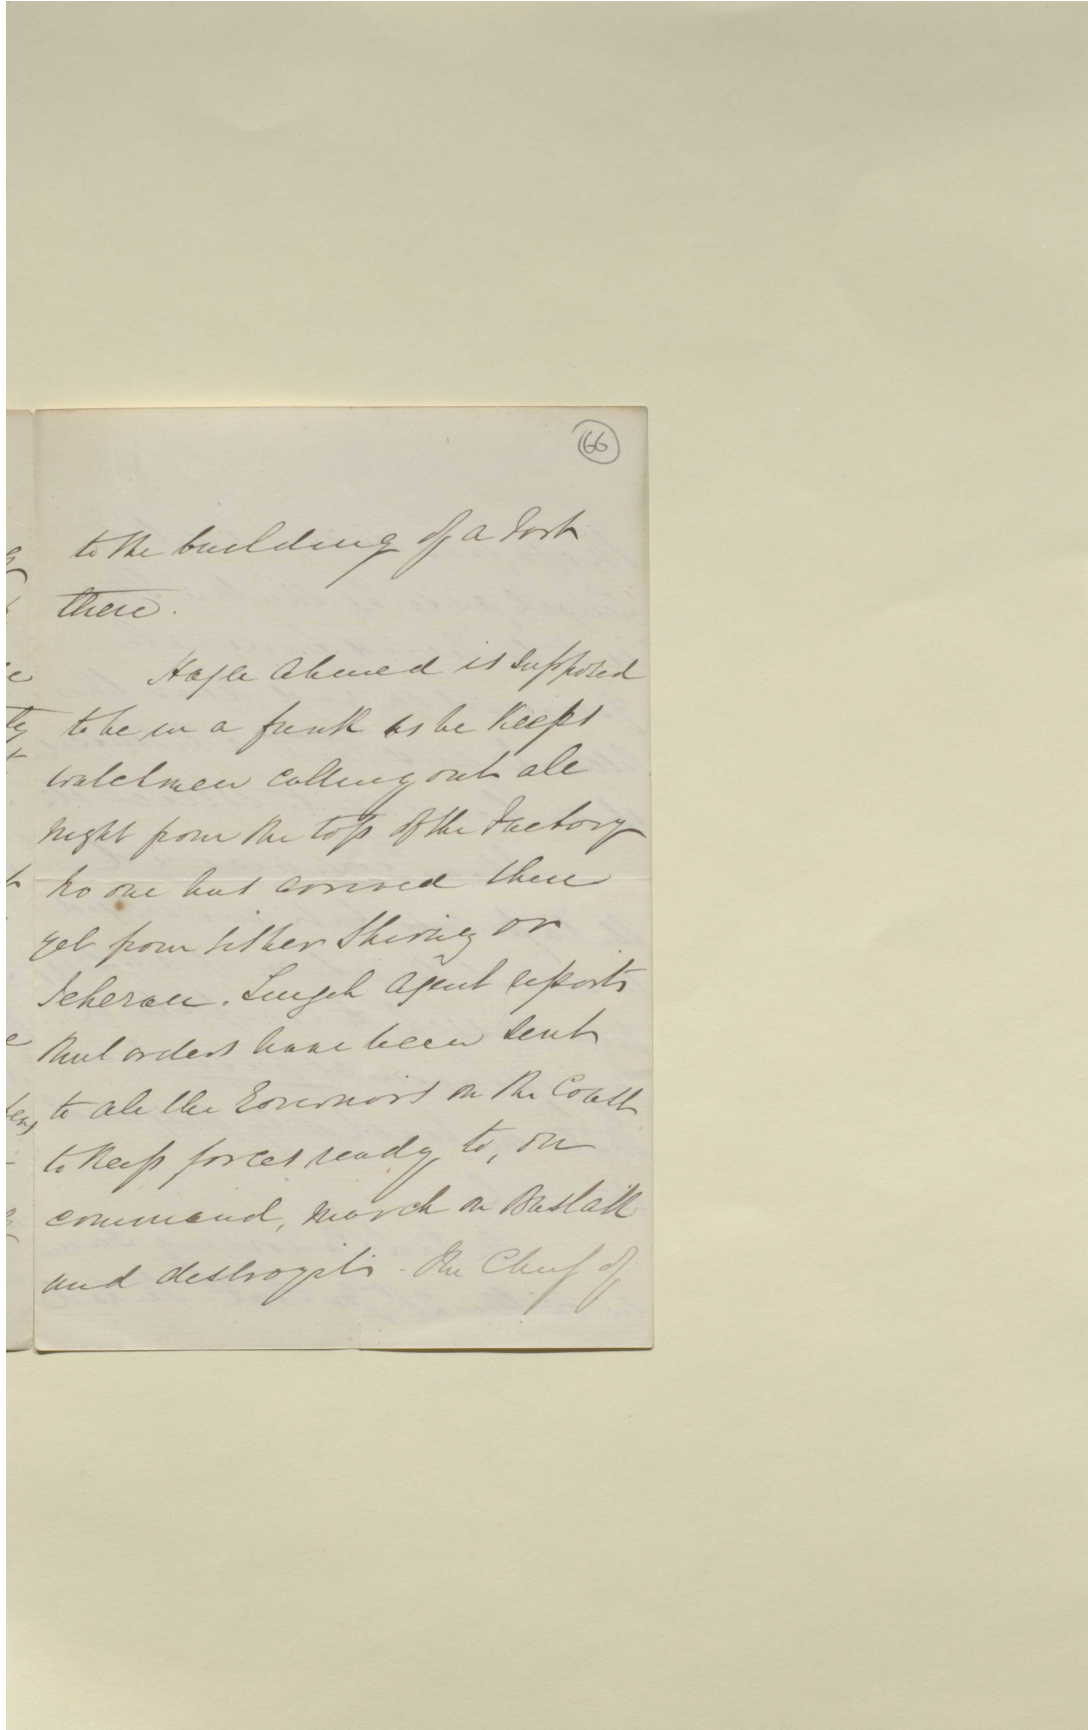 66
to the building of a Fort
there.
Hajee Ahmed is supposed
to be in a funk as he keeps
watchmen calling out all
night from the top of the Factory
no one has arrived there
yet from either Shiraz or
Teheran. Lingah Agent reports
that orders have been sent
to all the Governors on the Coast
to keep forces ready to, on
command, march on
and destroy it. The Chief of